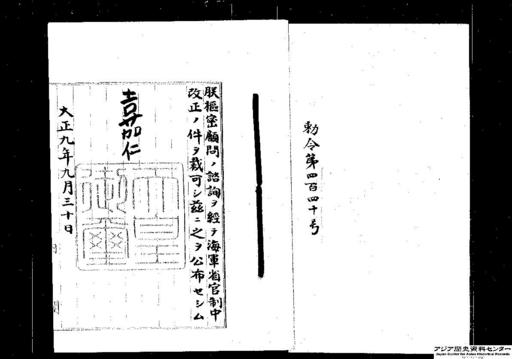 勅令第四百四十号
朕樞密顧問ノ諮詢ヲ経テ海軍省官制中
改正ノ件ヲ裁可シ茲ニ之ヲ公布セシム
嘉仁
天皇
御璽
大正九年九月三十日
アジア歴史資料センター
Japan Center for Asian Historical Records